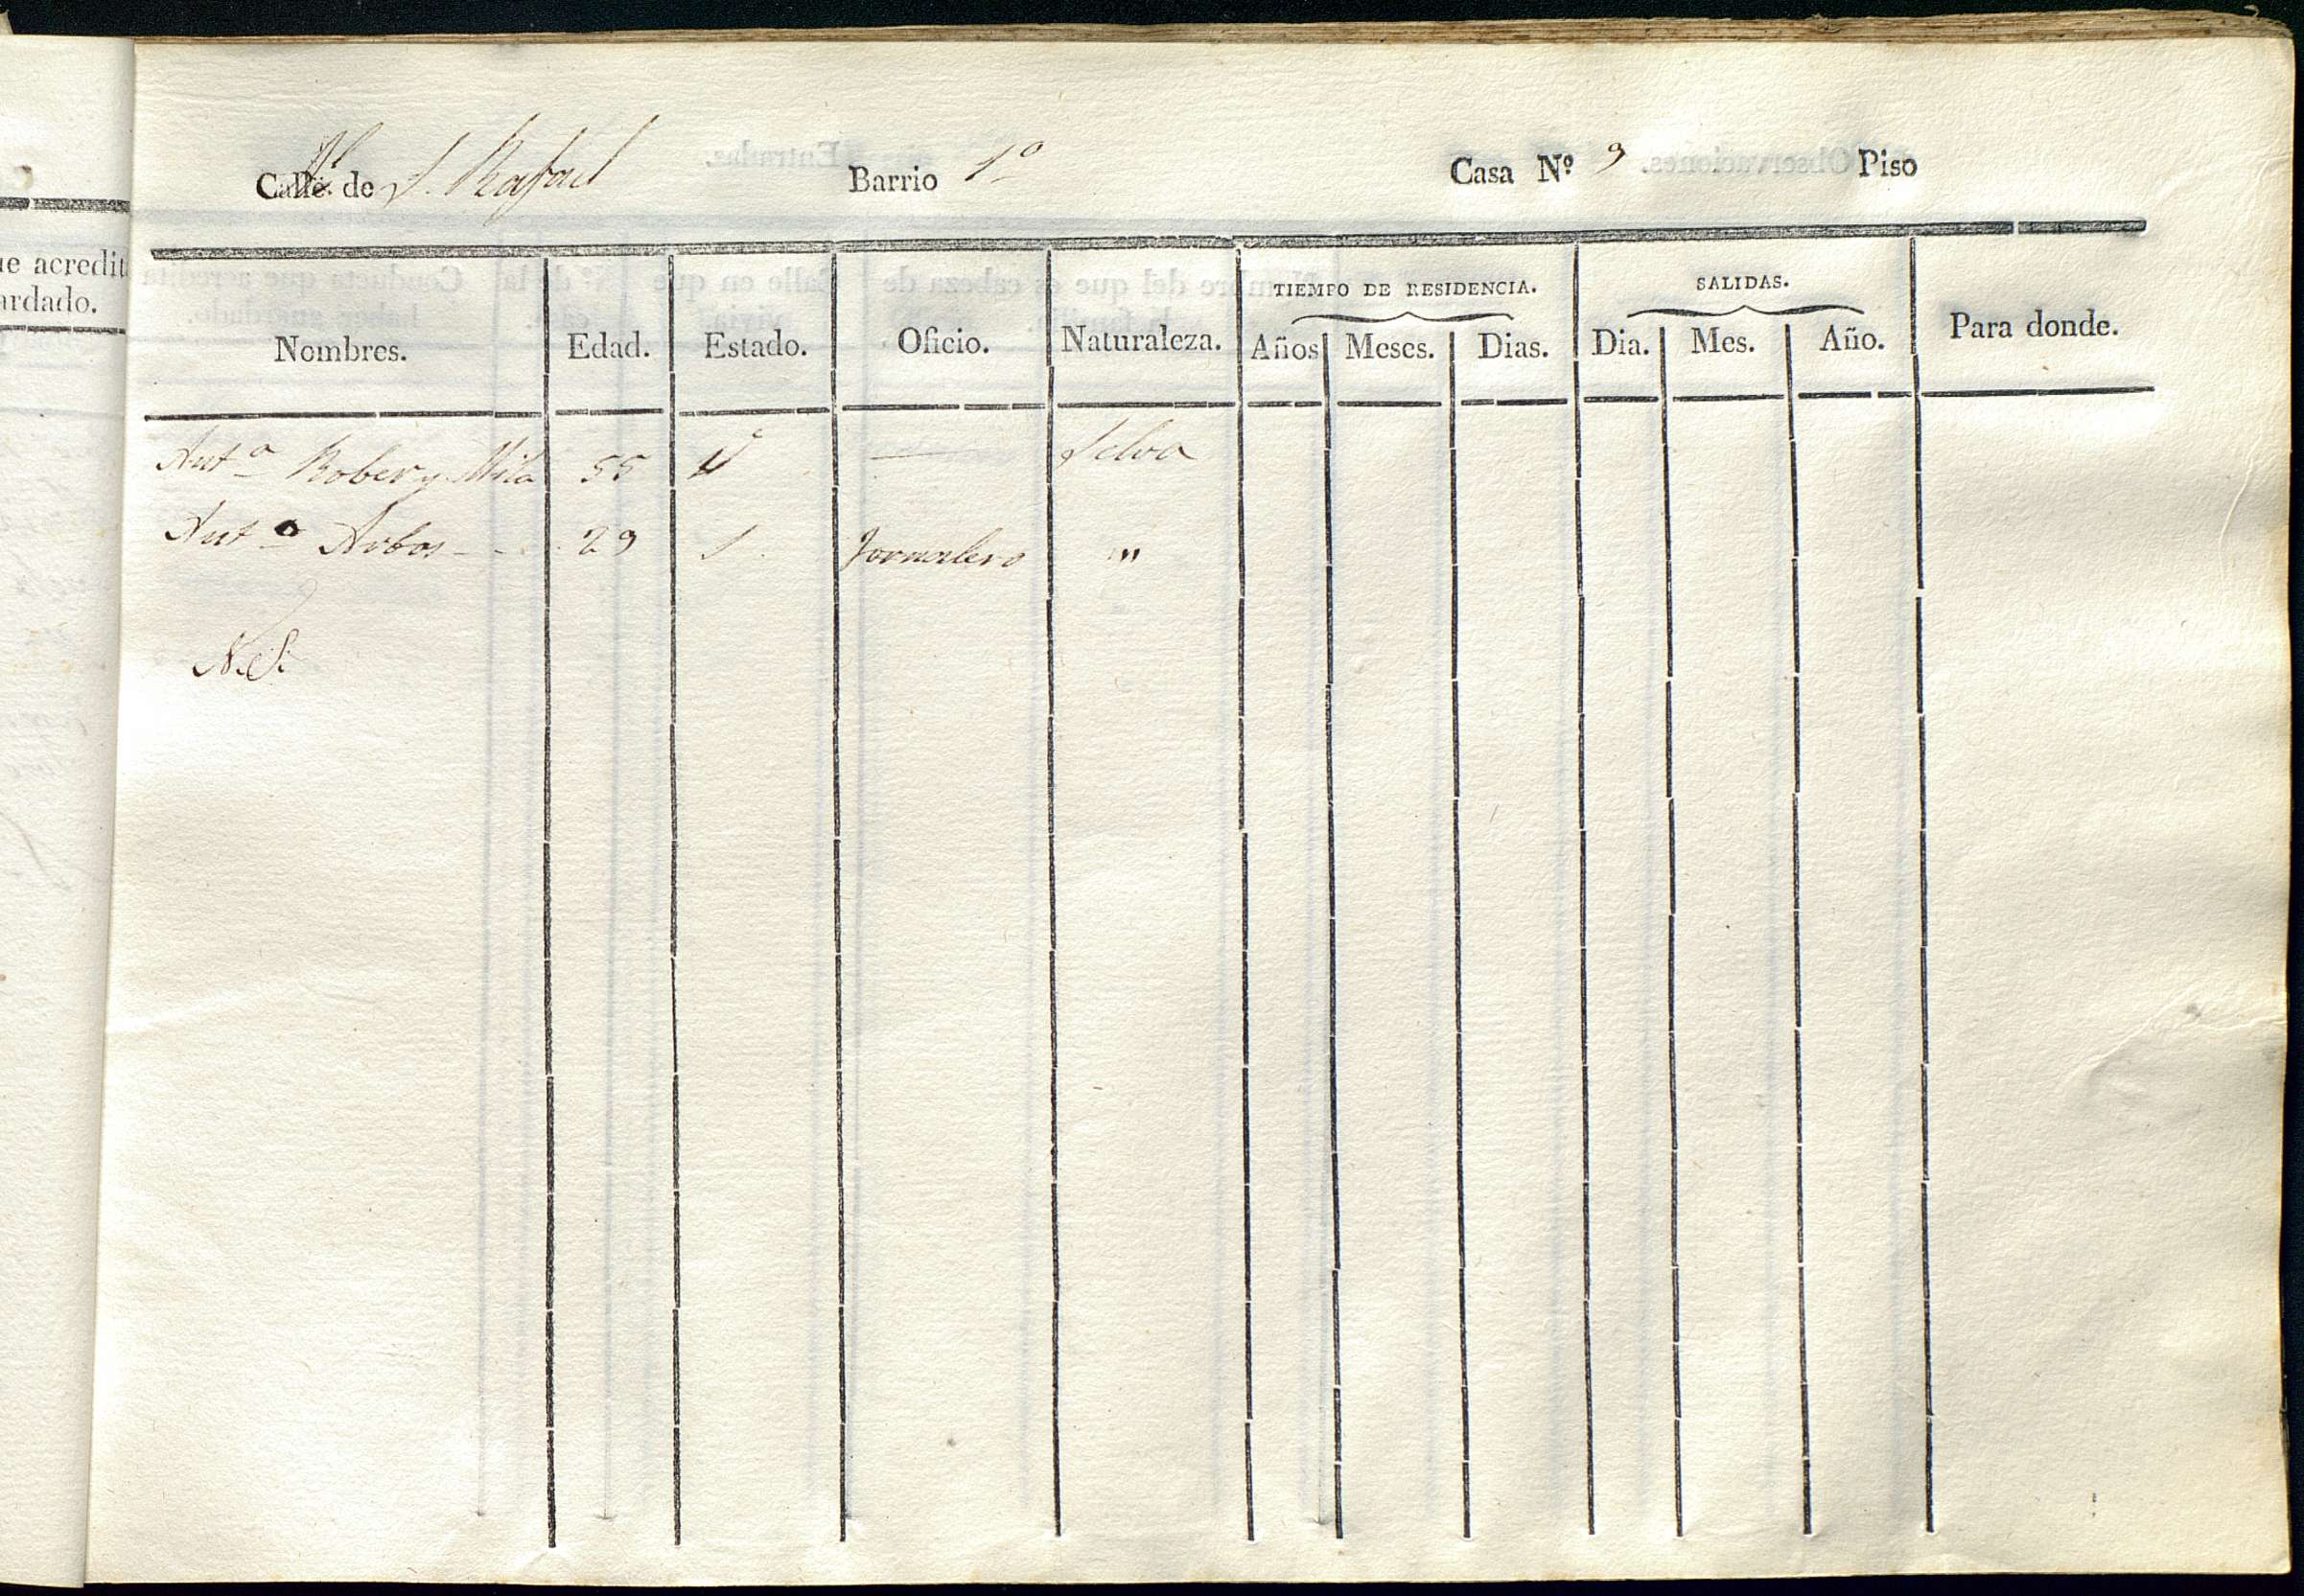 Calle de S. Rafael Barrio 1º Casa Nº 9 Piso
ue acredita
ardado.
TIEMPO DE RESIDENCIA. SALIDAS.
Nombres. Edad. Estado. Oficio. Naturaleza. Años Meses. Dias. Dia. Mes. Año. Para donde.
Antª Rober y Mila 55 Vª — Selva
Antº Arbos - - 29 S. Jornalero "
N.S.